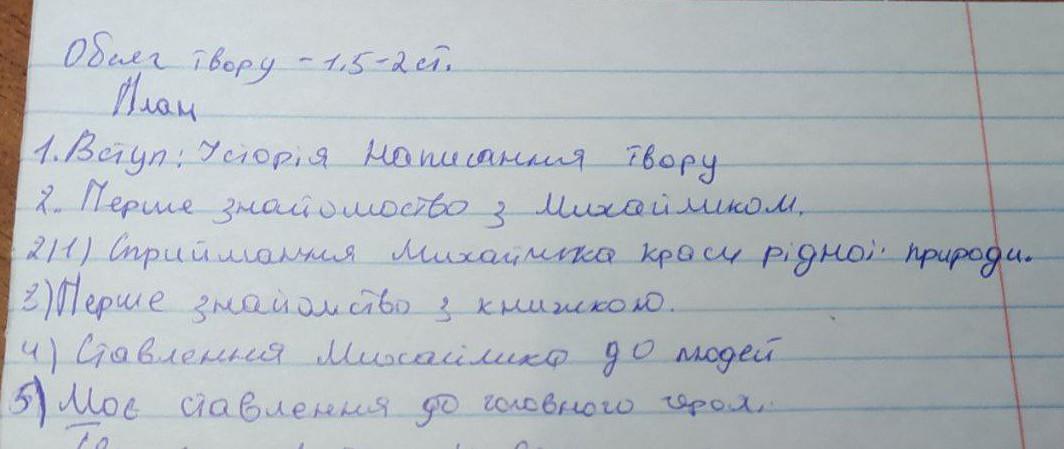 Обсяг твору - 1,5-2 ст.
План
1. Вступ: Історія написання твору
2. Перше знайомоство з Михайликом.
2)1) Сприймання Михайлика краси рідної природи.
3) Перше знайомство з книжкою.
4) Ставлення Михайлика до людей
5) Моє ставлення до головного героя.